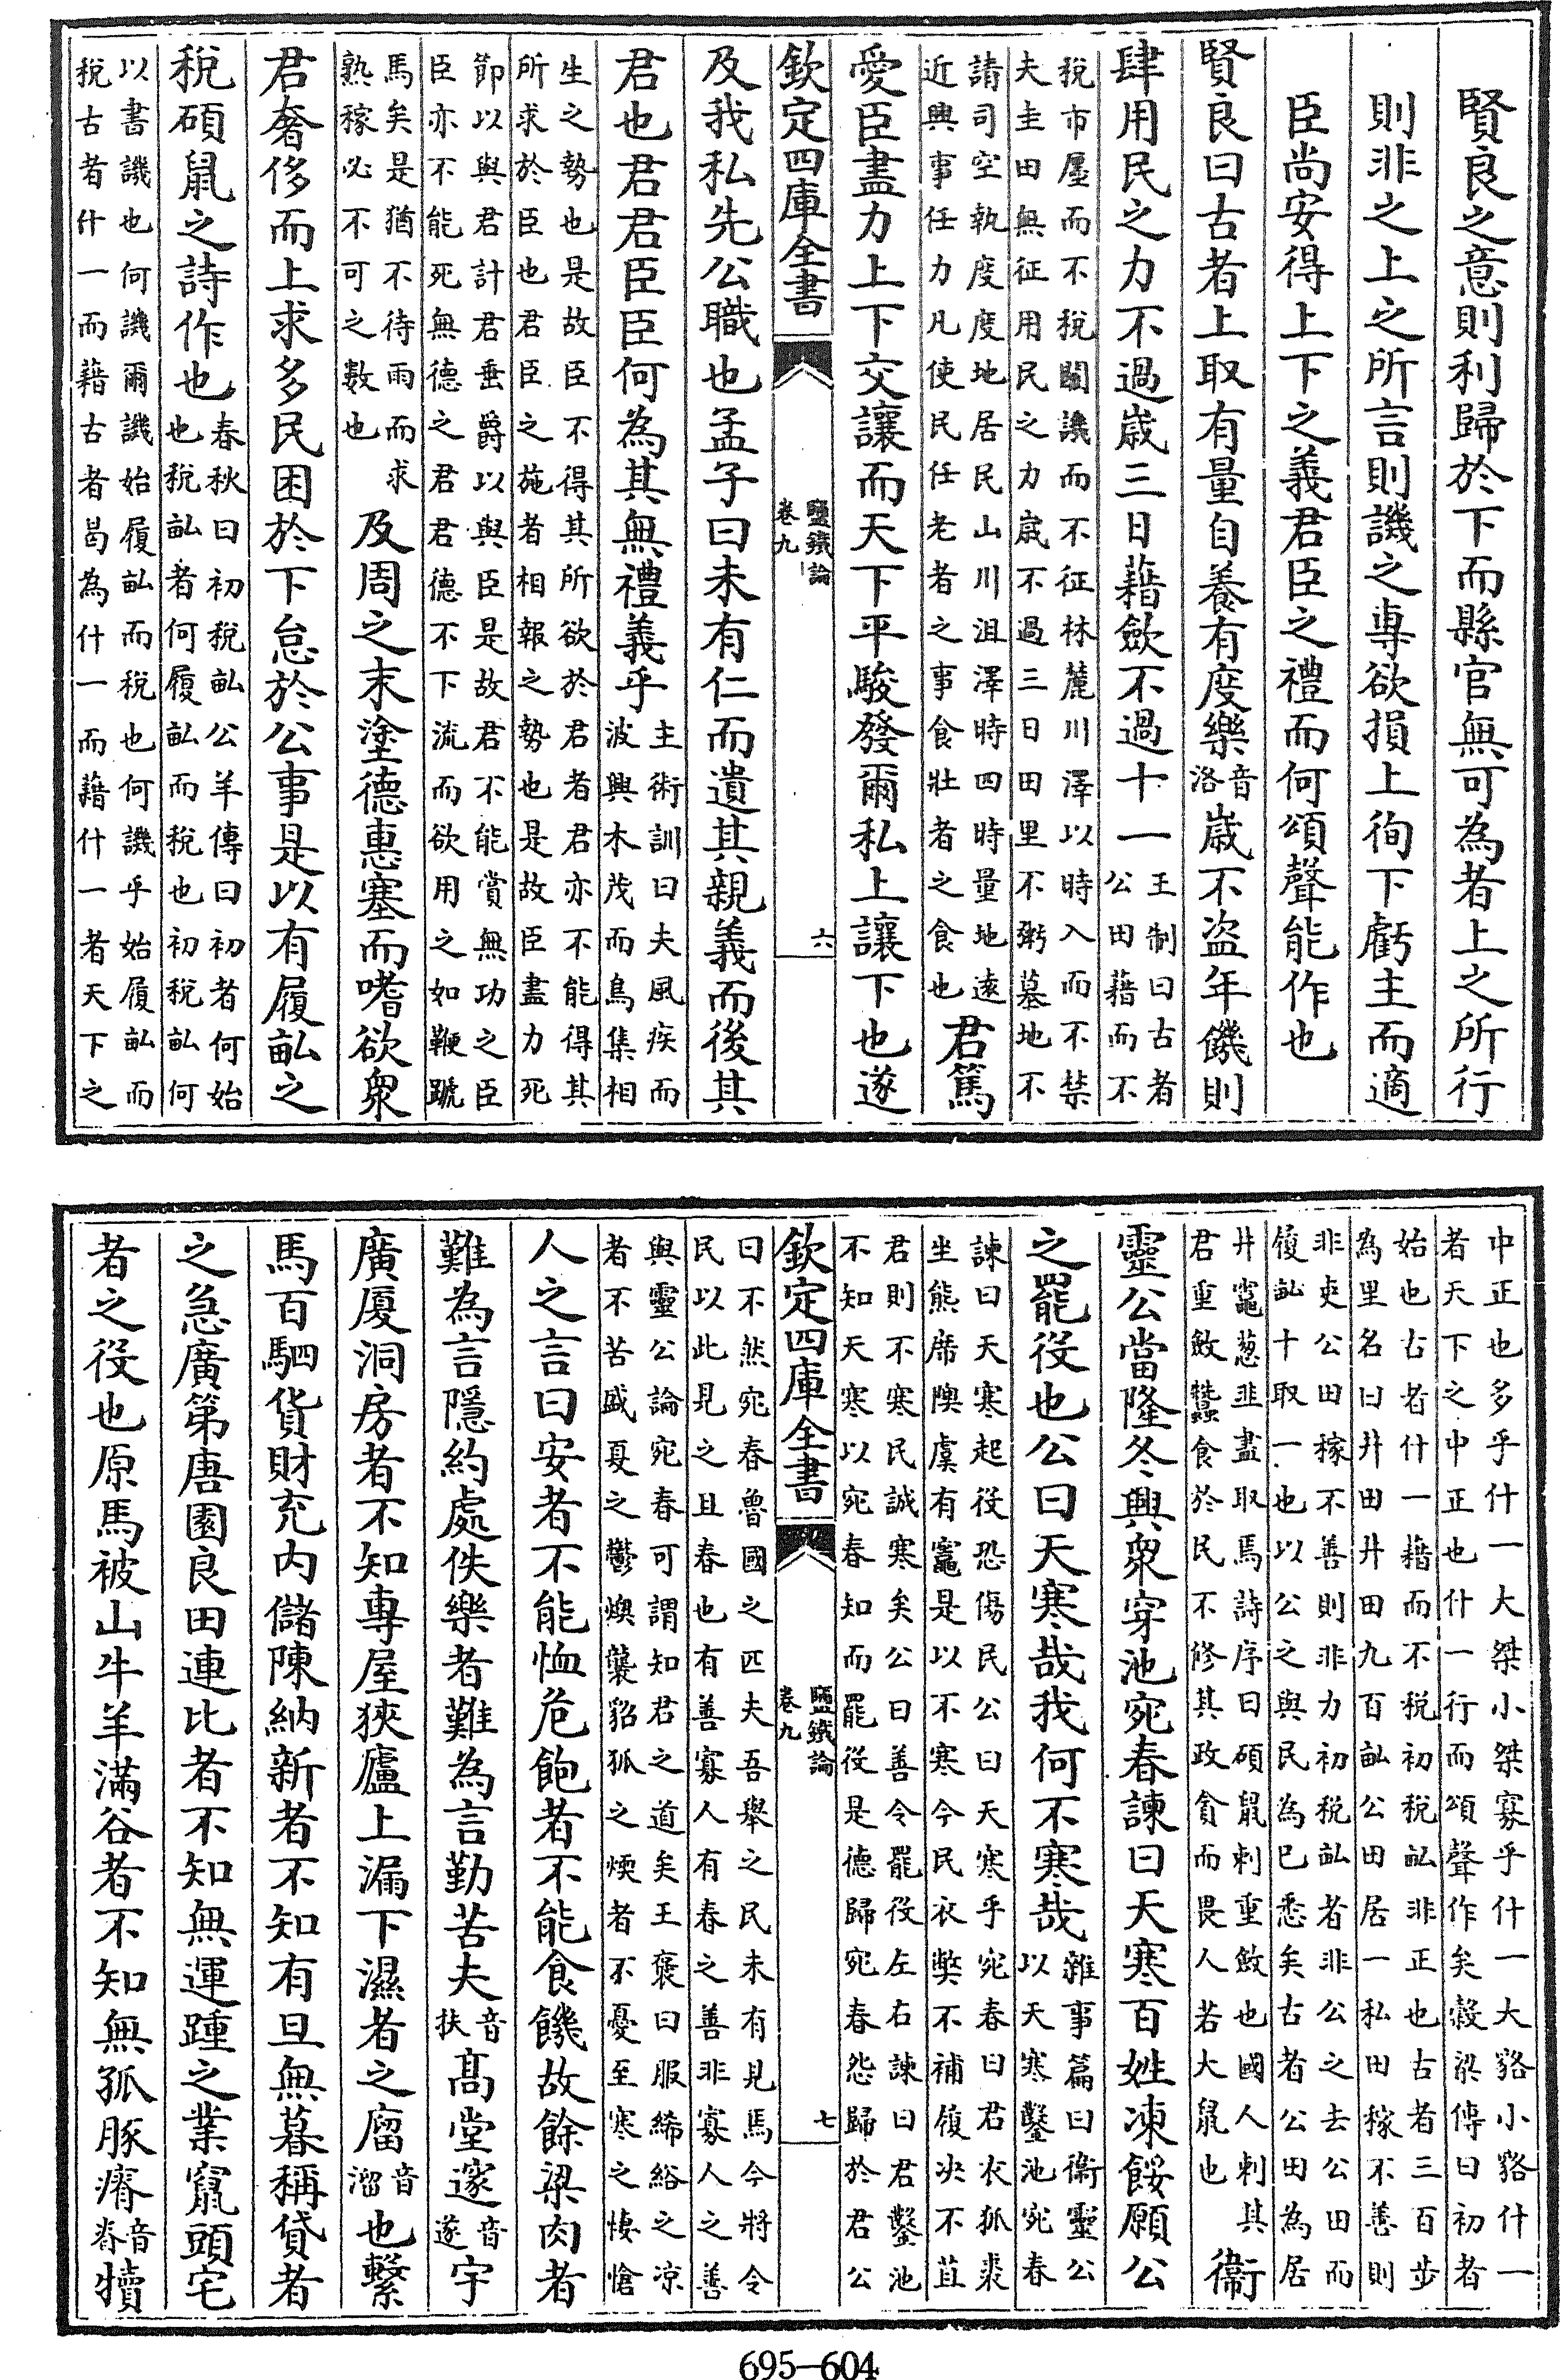 賢良之意則利歸於下而縣官無可為者上之所行
則非之上之所言則譏之專欲損上徇下虧主而適
臣尚安得上下之義君臣之禮而何頌聲能作也
賢良曰古者上取有量自養有度樂音洛嵗不盜年饑則
肆用民之力不過嵗三日藉斂不過十一王制曰古者公田藉而不
税市廛而不税關譏而不征林麓川澤以時入而不禁
夫圭田無征用民之力嵗不過三日田里不粥墓地不
請司空執度度地居民山川沮澤時四時量地逺
近興事任力凡使民任老者之事食壯者之食也君篤
愛臣盡力上下交讓而天下平駿發爾私上讓下也遂
欽定四庫全書
鹽鐵論
卷九
六
及我私先公職也孟子曰未有仁而遺其親義而後其
君也君君臣臣何為其無禮義乎主術訓曰夫風疾而波興木茂而鳥集相
生之勢也是故臣不得其所欲於君者君亦不能得其
所求於臣也君臣之施者相報之勢也是故臣盡力死
節以與君計君垂爵以與臣是故君不能賞無功之臣
臣亦不能死無德之君君德不下流而欲用之如鞭蹏
馬矣是猶不待雨而求熟稼必不可之數也及周之末塗德惠塞而嗜欲衆
君奢侈而上求多民困於下怠於公事是以有履畝之
税碩鼠之詩作也春秋曰初税畝公羊傳曰初者何始也税畝者何履畝而税也初税畝何
以書譏也何譏爾譏始履畝而税也何譏乎始履畝而
税古者什一而藉古者曷為什一而藉什一者天下之
中正也多乎什一大桀小桀寡乎什一大貉小貉什一
者天下之中正也什一行而頌聲作矣穀梁傳曰初者
始也古者什一藉而不税初税畝非正也古者三百步
為里名曰井田井田九百畝公田居一私田稼不善則
非吏公田稼不善則非力初税畝者非公之去公田而
履畝十取一也以公之與民為已悉矣古者公田為居
井竈葱韭盡取焉詩序曰碩鼠刺重斂也國人刺其
君重斂蠶食於民不修其政貪而畏人若大鼠也衞
靈公當隆冬興衆穿池宛春諫曰天寒百姓凍餒願公
之罷役也公曰天寒哉我何不寒哉雜事篇曰衞靈公以天寒鑿池宛春
諫曰天寒起役恐傷民公曰天寒乎宛春曰君衣狐裘
坐熊席隩虞有竈是以不寒今民衣弊不補履决不苴
君則不寒民誠寒矣公曰善令罷役左右諫曰君鑿池
不知天寒以宛春知而罷役是德歸宛春怨歸於君公
欽定四庫全書
鹽鐵論
卷九
七
曰不然宛春魯國之匹夫吾舉之民未有見焉今將令
民以此見之且春也有善寡人有春之善非寡人之善
與靈公論宛春可謂知君之道矣王褒曰服絺綌之凉
者不苦盛夏之鬱燠襲貂狐之煗者不憂至寒之悽愴
人之言曰安者不能恤危飽者不能食饑故餘粱肉者
難為言隱約處佚樂者難為言勤苦夫音扶髙堂邃音遂宇
廣厦洞房者不知專屋狹廬上漏下濕者之㽞音溜也繫
馬百駟貨財充内儲陳納新者不知有旦無暮稱貸者
之急廣第唐園良田連比者不知無運踵之業竄頭宅
者之役也原馬被山牛羊滿谷者不知無孤豚瘠音脊犢
695-604